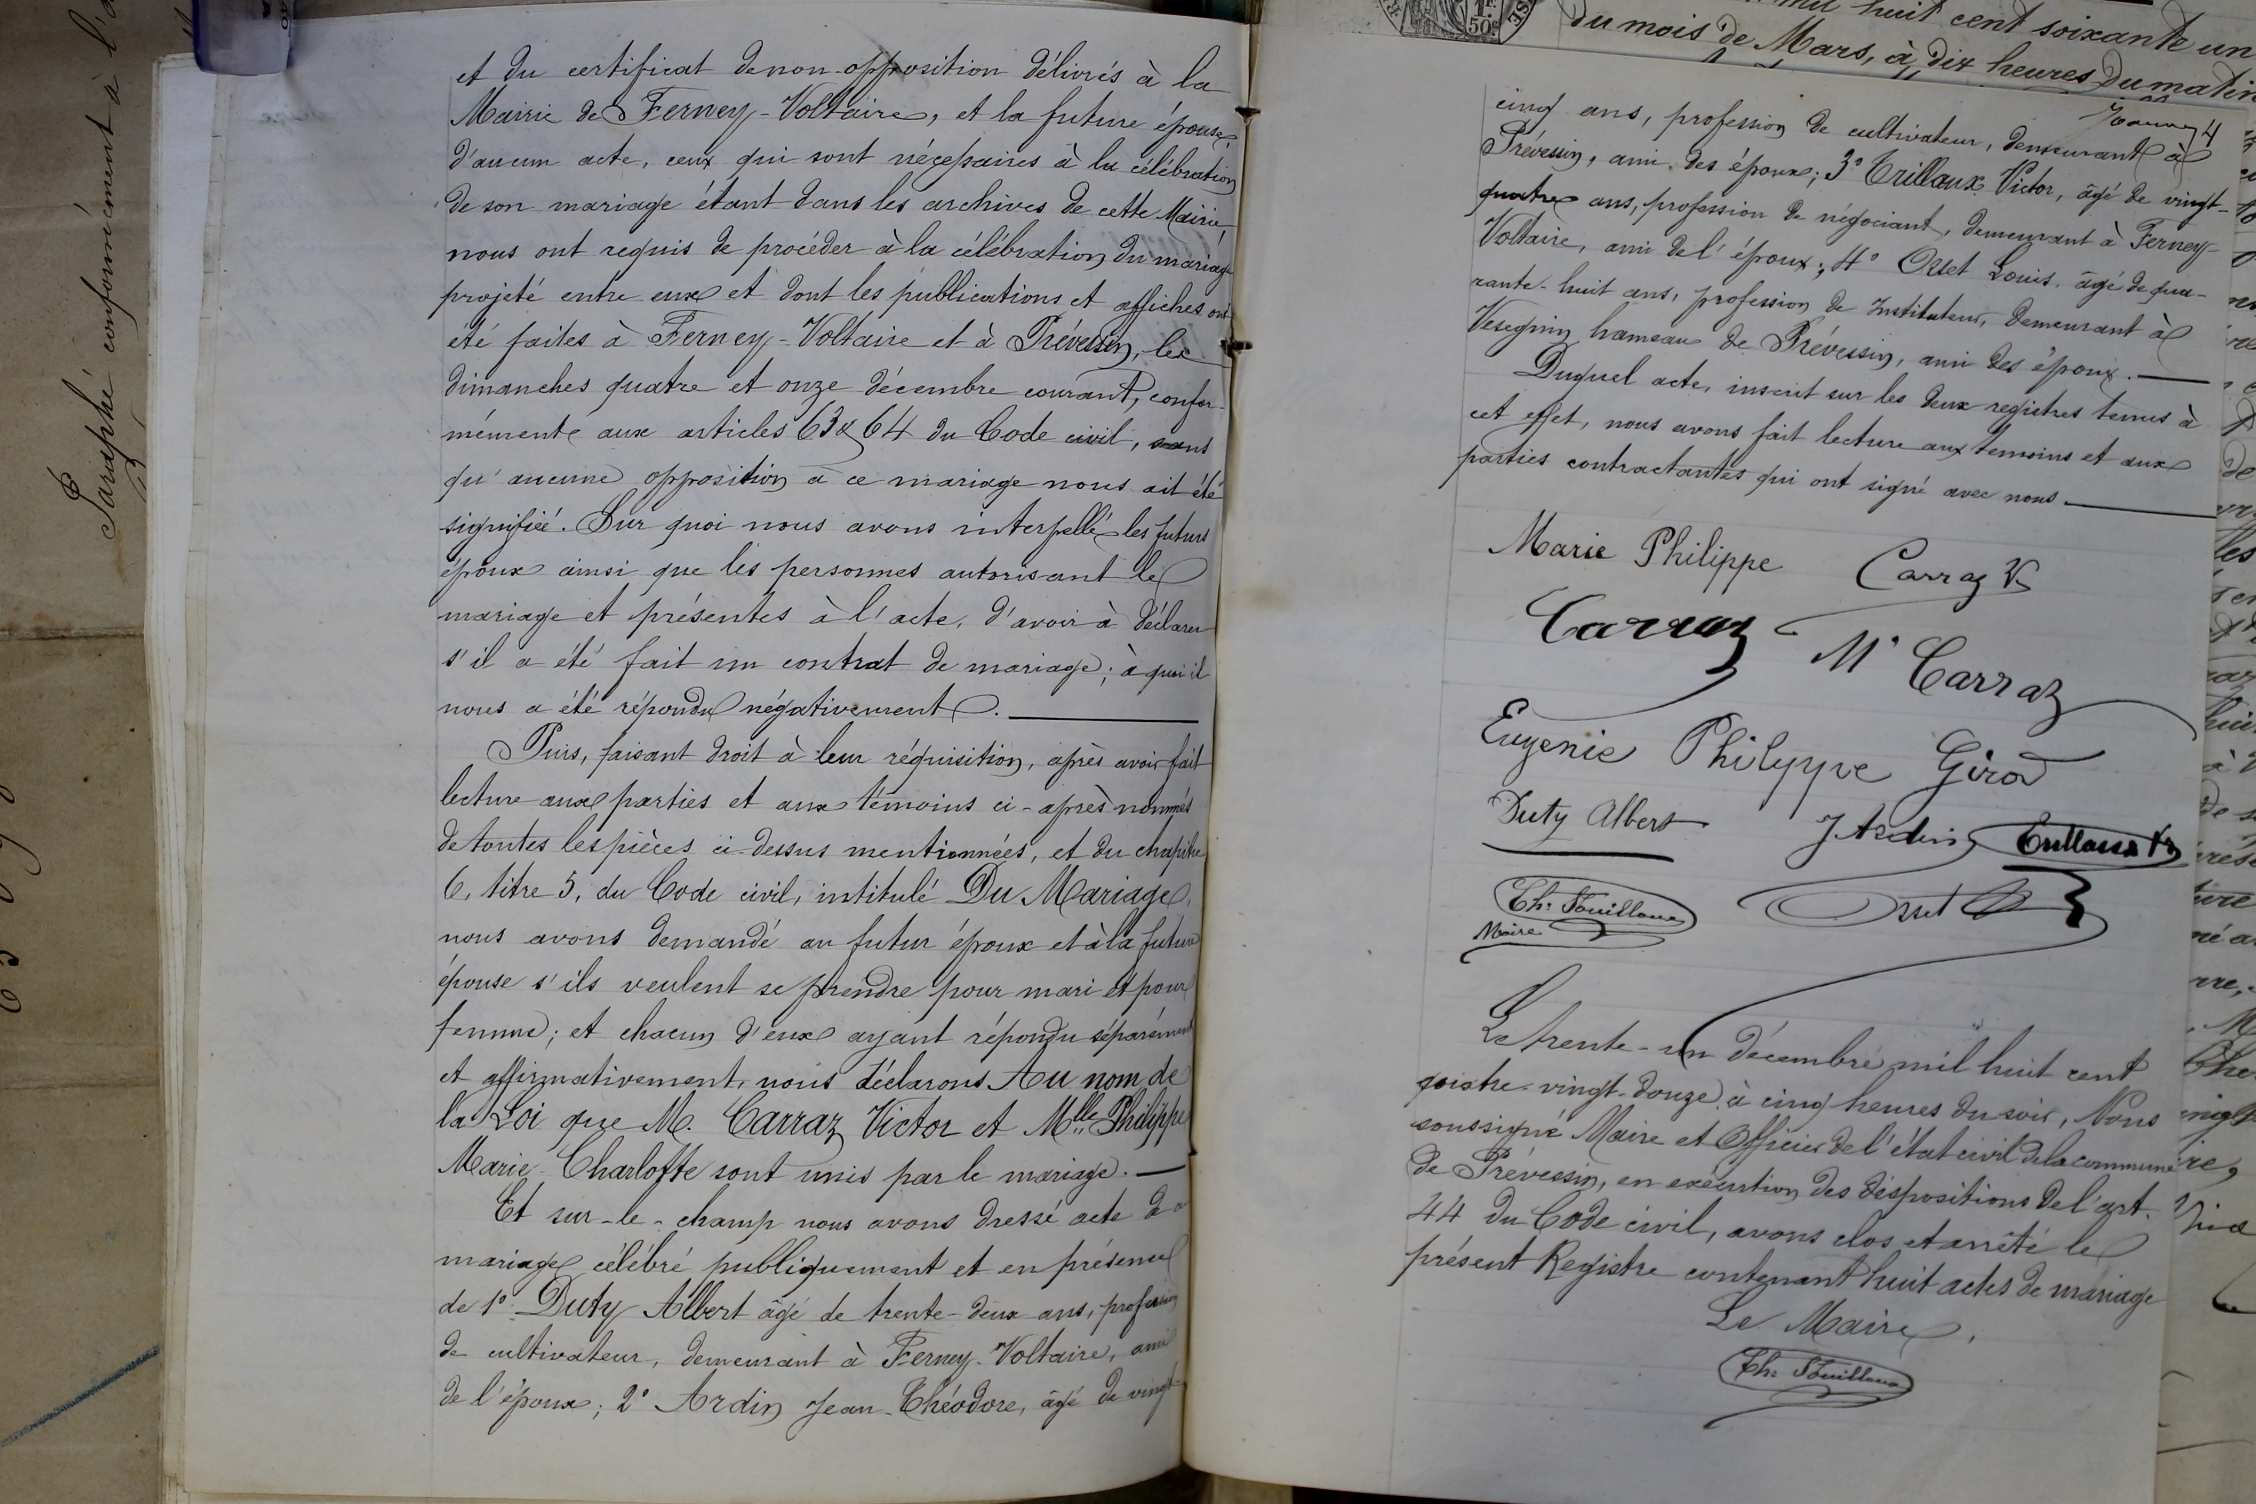 et du certificat de non-opposition délivrés à la
Mairie de Ferney-Voltaire, et la future épouse,
d'aucun acte, ceux qui sont nécessaires à la célébration
de son mariage étant dans les archives de cette Mairie,
nous ont requis de procéder à la célébration du mariage
projeté entre eux et dont les publications et affiches ont
été faites à Ferney-Voltaire et à Prévessin, les
dimanches quatre et onze décembre courant, confor-
mémente aux articles 63 & 64 du Code civil, sans
qu'aucune opposition à ce mariage nous ait été
signifiée. Sur quoi nous avons interpellé les futurs
époux ainsi que les personnes autorisant le
mariage et présentes à l'acte, d'avoir à déclarer
s'il a été fait un contrat de mariage; à quoi il
nous a été répondu négativement.
Puis, faisant droit à leur réquisition, après avoir fait
lecture aux parties et aux témoins ci-après nommés
de toutes les pièces ci-dessus mentionnées, et du chapitre
6, titre 5, du Code civil, intitulé Du Mariage,
nous avons demandé au futur époux et à la future
épouse s'ils veulent se prendre pour mari et pour
femme; et chacun d'eux ayant répondu séparément
et affirmativement, nous déclarons Au nom de
la Loi que M. Carraz Victor et Mlle Philippe
Marie-Charlotte sont unis par le mariage.
Et sur-le-champ nous avons dressé acte de
mariage célébré publiquement et en présence
de 1° Duty Albert âgé de trente-deux ans, profession
de cultivateur, demeurant à Ferney-Voltaire, ami
de l'époux; 2° Ardin Jean-Théodore, âgé de vingt-
Paraphé conformément à l'a
mil huit cent soixante un
du mois de Mars, à dix heures du matin
cinq ans, profession de cultivateur, demeurant à
Prévessin, ami des époux; 3° Trilloux Victor, âgé de vingt-
quatre ans, profession de négociant, demeurant à Ferney-
Voltaire, ami de l'époux; 4° Orset Louis, âgé de qua-
rante-huit ans, profession de Instituteur, demeurant à
Vesegnin hameau de Prévessin, ami des époux.
Duquel acte, inscrit sur les deux registres tenus à
cet effet, nous avons fait lecture aux témoins et aux
parties contractantes qui ont signé avec nous
Marie Philippe Carraz V
Carraz M Carraz
Eugenie Philyppe Girod
Duty Albert J Ardin Trilloux
Th. Fouilloux Orset
Maire
Le trente-un décembre mil huit cent
quatre-vingt-douze à cinq heures du soir, Nous
soussigné Maire et Officier de l'état civil de la commune
de Prévessin, en exécution des dispositions de l'art.
44 du Code civil, avons clos et arrêté le
présent Registre contenant huit actes de mariage
Le Maire,
Th. Fouilloux